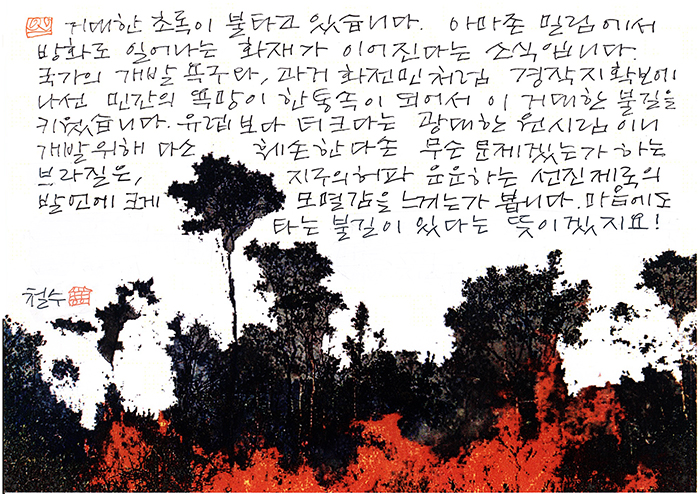 거대한 초록이 불타고 있습니다. 아마존 밀림에서
방화로 일어나는 화재가 이어진다는 소식입니다.
국가의 개발 폭주와, 과거 화전민처럼 경작지확보에
나선 민간의 욕망이 한통속이 되어서 이 거대한 불길을
키웠습니다. 유럽보다 더크다는 광대한 원시림이니
개발위해 다소 훼손한다손 무슨 문제겠는가 하는
브라질은, 지구의허파 운운하는 선진제국의
발언에 크게 모멸감을 느끼는가 봅니다. 마음에도
타는 불길이 있다는 뜻이겠지요!
철수